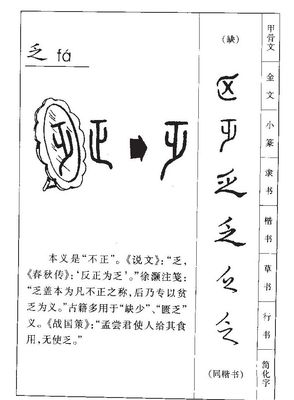 乏 fá
本义是“不正”。《说文》：“乏，
《春秋传》：‘反正为乏’。”徐灏注笺：
“乏盖本为凡不正之称，后乃专以贫
乏为义。”古籍多用于“缺少”、“匮乏”
义。《战国策》：“孟尝君使人给其食
用，无使乏。”
（缺）
乏
乏
乏
乏
（同楷书）
甲骨文
金文
小篆
隶书
楷书
草书
行书
简化字